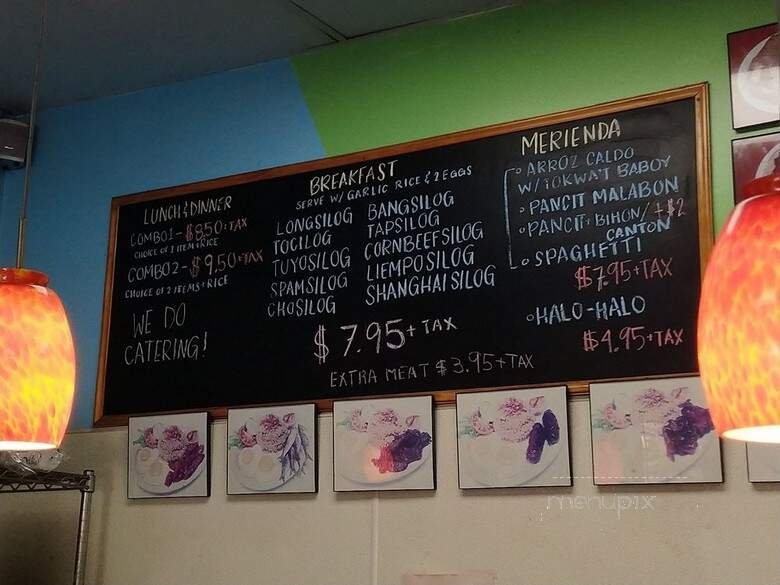 LUNCH & DINNER
COMBO 1 - $8.50+TAX
CHOICE OF 1 ITEM+RICE
COMBO 2 - $9.50+TAX
CHOICE OF 2 ITEMS+RICE
WE DO
CATERING!
BREAKFAST
SERVE W/ GARLIC RICE & 2 EGGS
LONGSILOG
TOCILOG
TUYOSILOG
SPAMSILOG
CHOSILOG
BANGSILOG
TAPSILOG
CORNBEEFSILOG
LIEMPOSILOG
SHANGHAISILOG
$7.95+TAX
EXTRA MEAT $3.95+TAX
MERIENDA
ARROZ CALDO
W/TOKWA'T BABOY
PANCIT MALABON
PANCIT: BIHON/ +$2
CANTON
SPAGHETTI
$7.95+TAX
HALO-HALO
$4.95+TAX
menupix